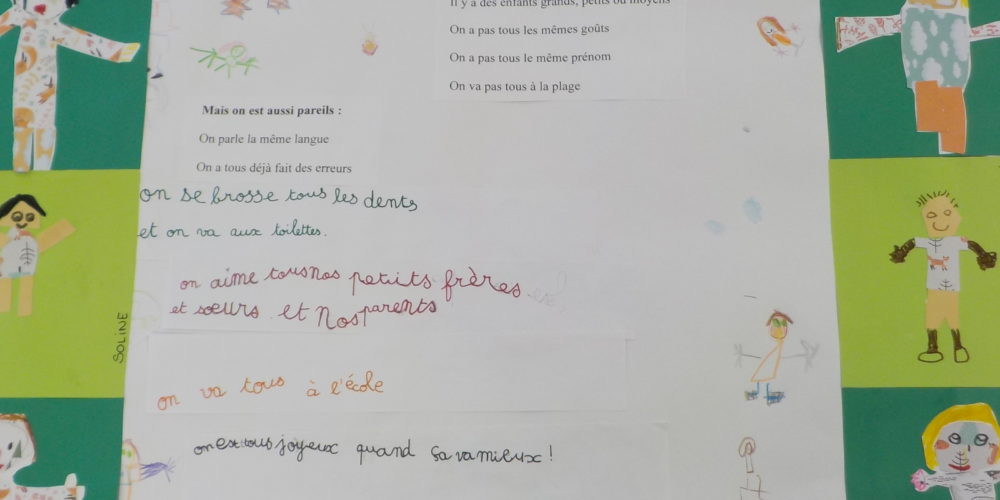 Il y a des enfants grands, petits ou moyens
On a pas tous les mêmes goûts
On a pas tous le même prénom
On va pas tous à la plage
Mais on est aussi pareils :
On parle la même langue
On a tous déjà fait des erreurs
on se brosse tous les dents
et on va aux toilettes.
on aime tous nos petits frères
et sœurs et nos parents
on va tous à l'école
on est tous joyeux quand sa va mieux !
SOLINE